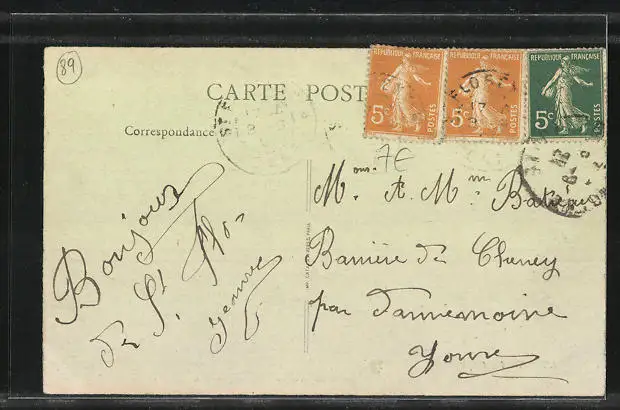 89
CARTE POST
Correspondance
REPUBLIQUE FRANÇAISE
5c POSTES
REPUBLIQUE FRANÇAISE
5c POSTES
REPUBLIQUE FRANÇAISE
5c POSTES
7€
Bonjour
de St Flo
Mons. & Mm
Barrière de Cheney
par Tannemoine
Yonne